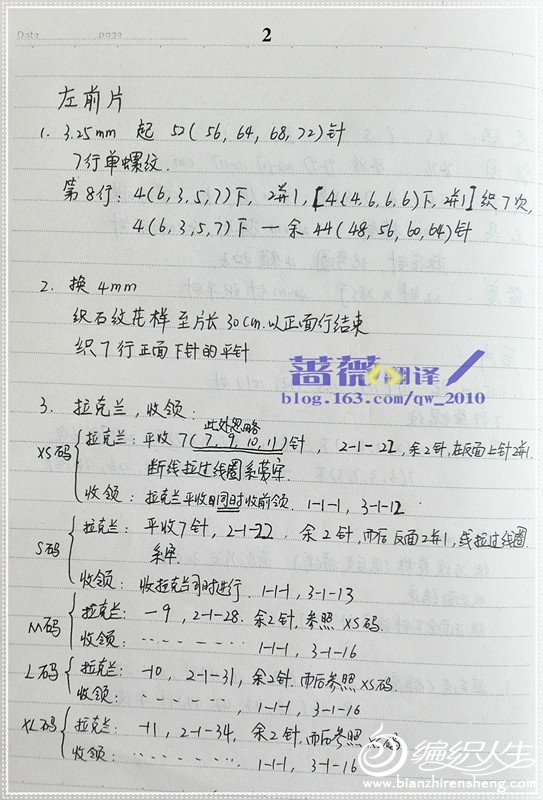 Date page
2
左前片
1. 3.25mm 起 52(56, 64, 68, 72)针
7行单螺纹.
第8行: 4(6, 3, 5, 7)下, 2并1, [4(4, 6, 6, 6)下, 2并1]织7次,
4(6, 3, 5, 7)下 — 余44(48, 56, 60, 64)针
2. 换4mm
织石纹花样至片长30cm.以正面行结束
织7行正面下针的平针
蔷薇翻译
blog.163.com/qw_2010
3. 拉克兰, 收领:
此处忽略
XS码 拉克兰: 平收7(7, 9, 10, 11)针, 2-1-22, 余2针, 在反面上针2并1.
断线拉过线圈系劳牢.
收领: 拉克兰平收的同时收前领. 1-1-1, 3-1-12
S码 拉克兰: 平收7针, 2-1-22. 余2针, 而后反面2并1, 线拉过线圈
系牢.
收领: 收拉克兰同时进行. 1-1-1, 3-1-13
M码 拉克兰: -9, 2-1-28. 余2针. 参照XS码.
收领: 1-1-1, 3-1-16
L码 拉克兰: -10, 2-1-31, 余2针. 而后参照XS码.
收领: 1-1-1, 3-1-16
XL码 拉克兰: -11, 2-1-34, 余2针, 而后参照XS码
收领: 1-1-1, 3-1-16
编织人生
www.bianzhirensheng.com